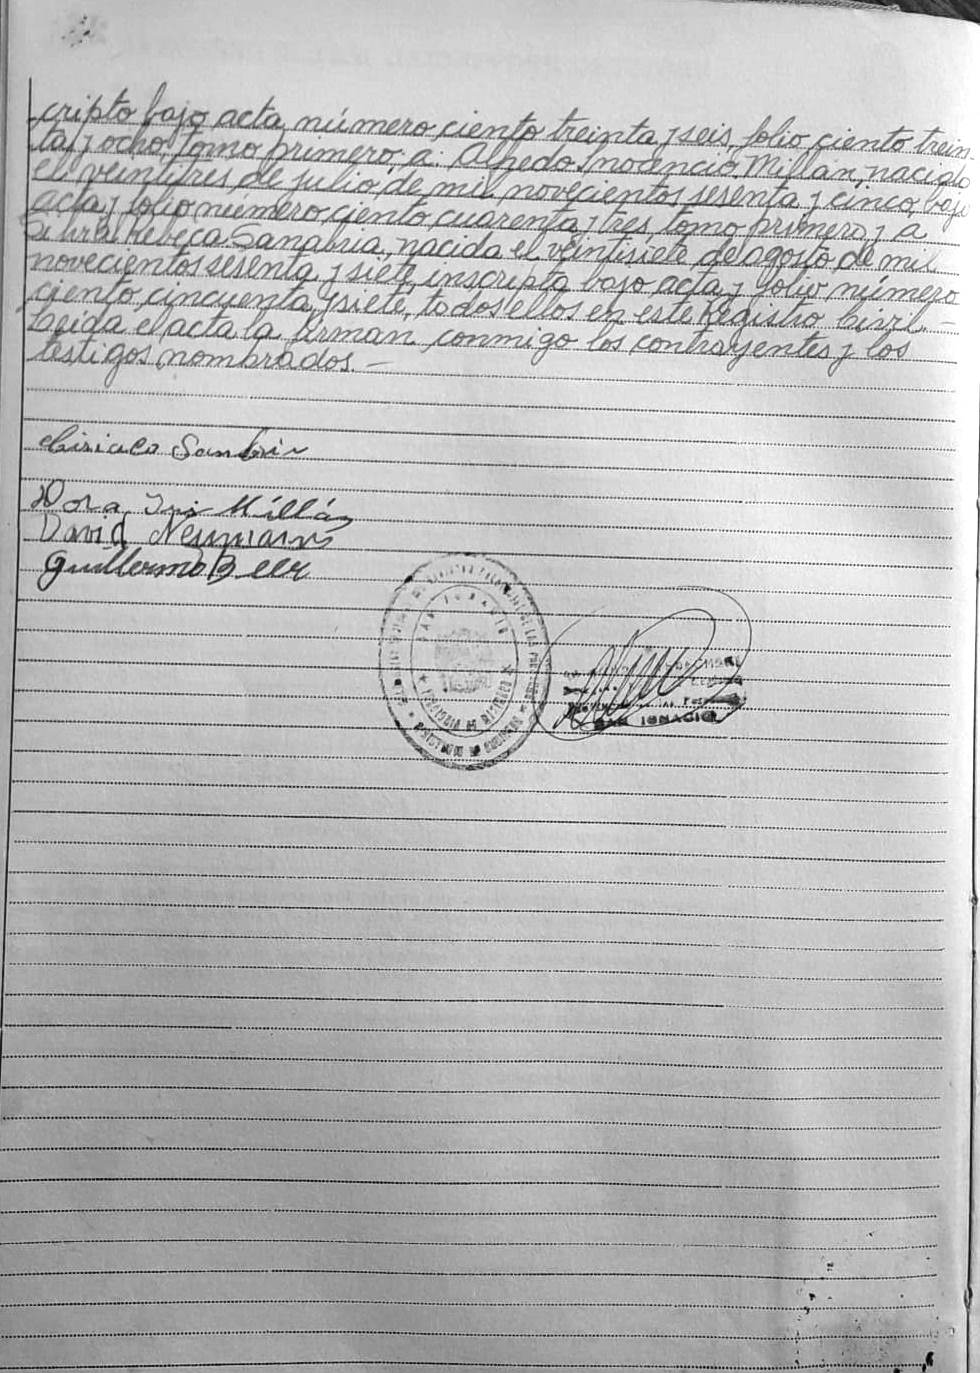 cripto bajo acta número ciento treinta y seis, folio ciento trein
ta y ocho, tomo primero; a: Alfredo Inocencio Millán, nacido
el veintitres de julio de mil novecientos sesenta y cinco, bajo
acta y folio número ciento cuarenta y tres, tomo primero, y a
Rebeca Sanabria, nacida el veintisiete de agosto de mil
novecientos sesenta y siete, inscripta bajo acta y folio número
ciento cincuenta y siete, todos ellos en este Registro Civil.-
Leida el acta la firman conmigo los contrayentes y los
testigos nombrados.-
Ciriaco
Dora Iris Millán
David Neumann
Guillermo Beer
SAN IGNACIO
SAN IGNACIO